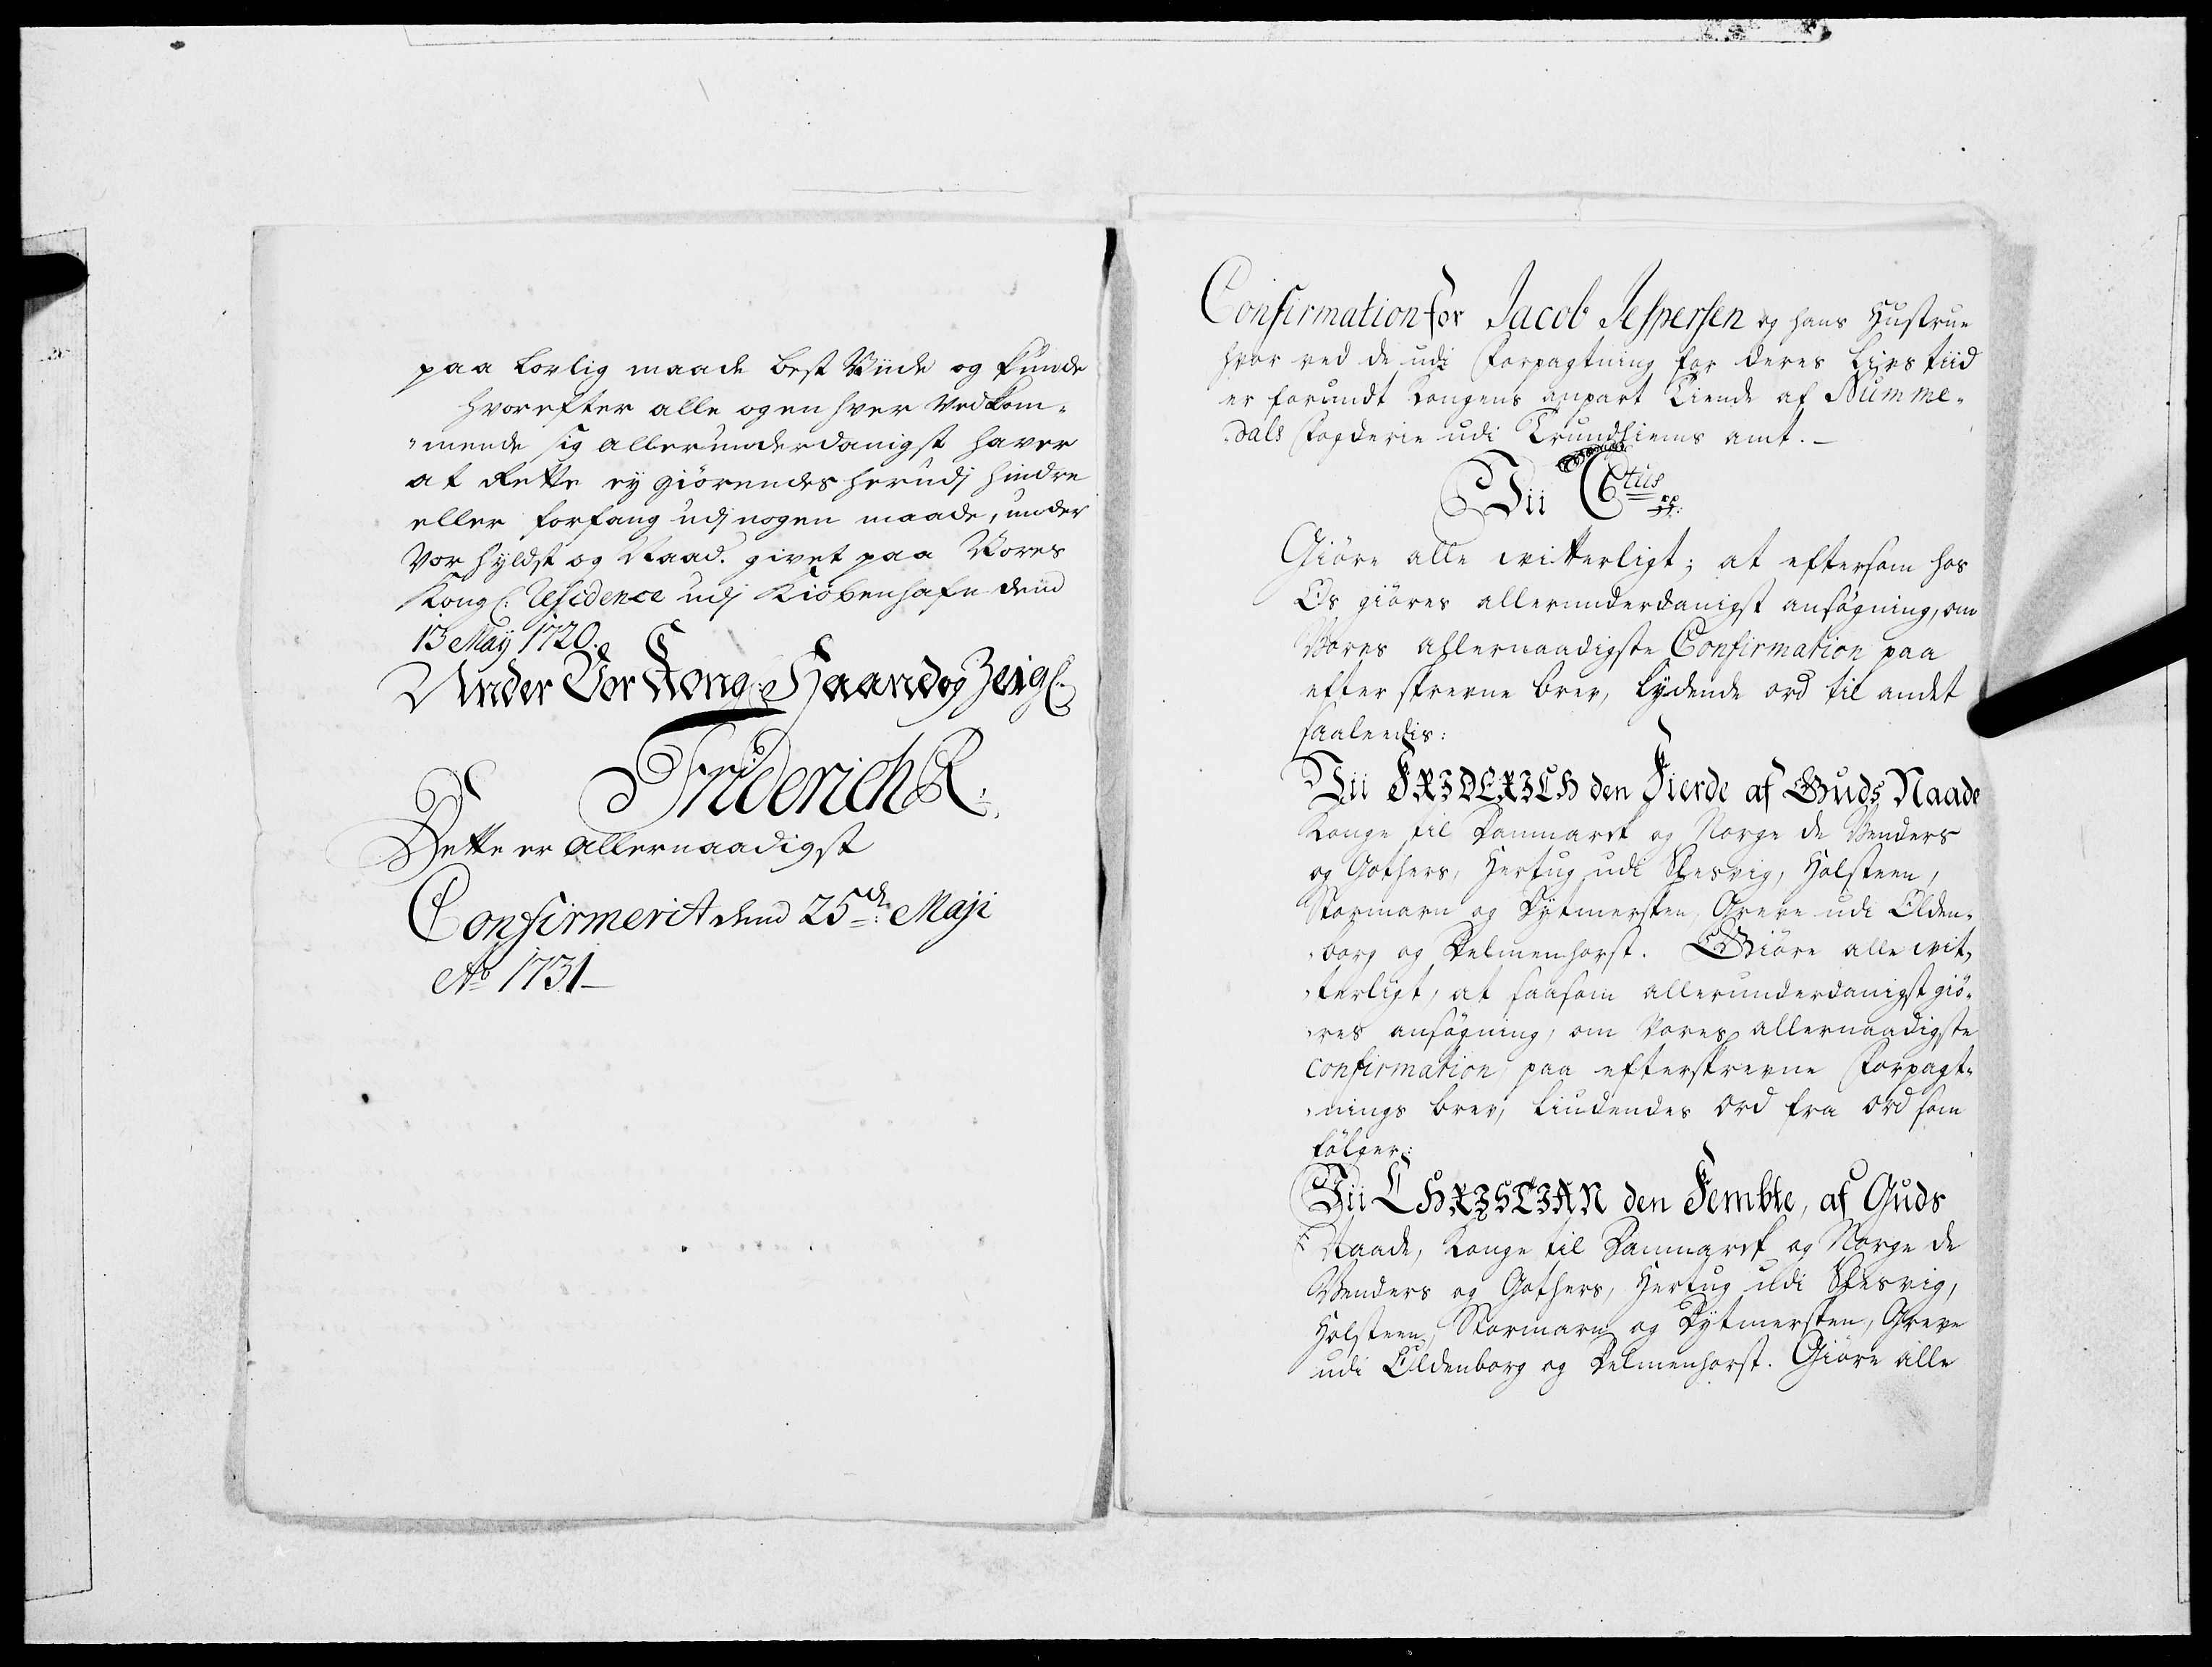 paa lovlig maade best Viide og kunde
hvorefter alle og en hver Vedkom-
-mende sig allerunderdanigst haver
at Rette ey giørendes herudj hindre
eller forfang udj nogen maade, under
Vor hyldst og Naad. givet paa Vores
Kongl: Residence udj Kiøbenhafn dend
13 May 1720.
Under Vor Kongl: Haand og Zeigl:
Friderich R:
Dette er allernaadigst
Confirmerit dend 25de: Maji
Ao 1731
Confirmation for Jacob Jespersen og hans Hustrue
hvor ved de udi Forpagtning for deres Livs tiid
er forundt Kongens anpart Tiende af Numme-
-dals Fogderie udi Trundhiems amt.
Vii C 6tus
Giöre alle vitterligt; at eftersom hos
Os giöres allerunderdanigst ansögning, om
Vores allernaadigste Confirmation paa
efter skrevne brev, lydende ord til andet
saaledis:
Vii FRIDERICH den Fierde af Guds Naade
Konge til Danmarck og Norge de Venders
og Gothers, Hertug udi Slesvig, Holsteen,
Stormarn og Dytmersken, Greve udi Olden-
-borg og Delmenhorst. Giöre alle vit-
-terligt, at saasom allerunderdanigst giö-
-res ansögning, om Vores allernaadigste
confirmation paa efterskrevne Forpagt-
-nings brev, liudendes Ord fra Ord som
fölger:
Vii CHRISTIAN den Fembte, af Guds
Naade, Konge til Danmarck og Norge de
Venders og Gothers, Hertug udi Slesvig,
Holsteen, Stormarn og Dytmersken, Greve
udi Oldenborg og Delmenhorst. Giöre alle